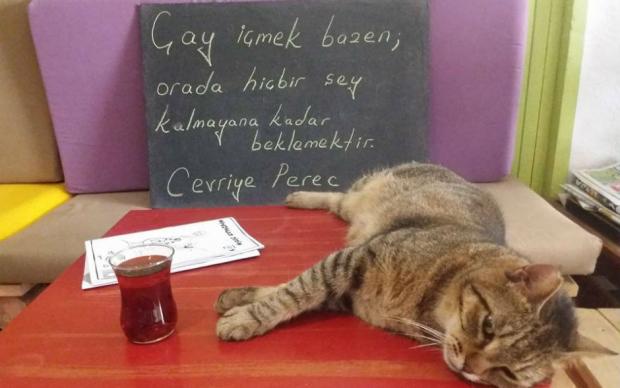 Çay içmek bazen;
orada hiçbir şey
kalmayana kadar
beklemektir.
Cevriye Perec